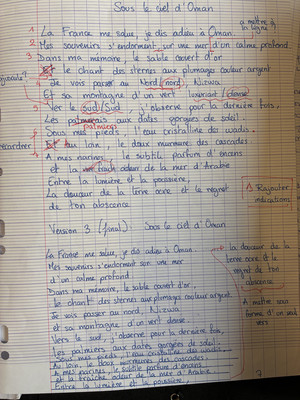 Sous le ciel d'Oman
à mettre à la ligne
1 La France me salue, je dis adieu à Oman.
2 Mes souvenirs s'endorment sur une mer d'un calme profond
3 Dans ma mémoire, le sable couvert d'or
Et le chant des sternes aux plumages couleur argent
Je vois passer au Nord (nord), Nizwa
Et sa montagne d'un vert (dense)
Ver le Sud/Sud j'observe pour la dernière fois,
Les palmiers aux dates gorgées de soleil
palmiers
Sous mes pieds, l'eau cristalline des wadis.
Et au loin, le doux murmure des cascades
A mes narines, le subtile parfum d'encens
et la odeur de la mer d'Arabie
Entre la lumière et la poussière
La douceur de la terre ocre et le regret
de ton absence
⚠ Rajouter indications
Version 3 (final): Sous le ciel d'Oman
La France me salue, je dis adieu à Oman.
Mes souvenirs s'endorment sur une mer
d'un calme profond
Dans ma mémoire, le sable couvert d'or,
le chant des sternes aux plumages couleur argent
Je vois passer au nord, Nizwa
et sa montagne d'un vert dense
Vers le sud, j'observe pour la dernière fois,
Les palmiers, aux dates gorgées de soleil
Sous mes pieds, l'eau cristalline des wadis
Au loin, le doux murmure des cascades
A mes narines, le subtile parfum d'encens
et la fraîche odeur de la mer d'Arabie
Entre la lumière et la poussière,
la douceur de la terre ocre et le regret de ton absence
A mettre sous forme d'un seul vers